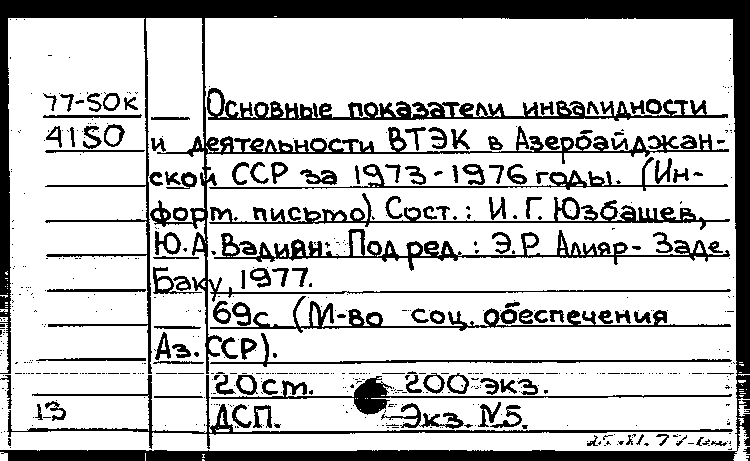 77-50к Основные показатели инвалидности
4150 и деятельности ВТЭК в Азербайджан-
ской ССР за 1973-1976 годы. (Ин-
форм. письмо). Сост.: И.Г. Юзбашев,
Ю.А. Вадиян: Под ред.: Э.Р. Алияр-Заде.
Баку, 1977.
69с. (М-во соц. обеспечения
Аз. ССР).
20 ст. 200 экз.
13 ДСП. Экз. №5.